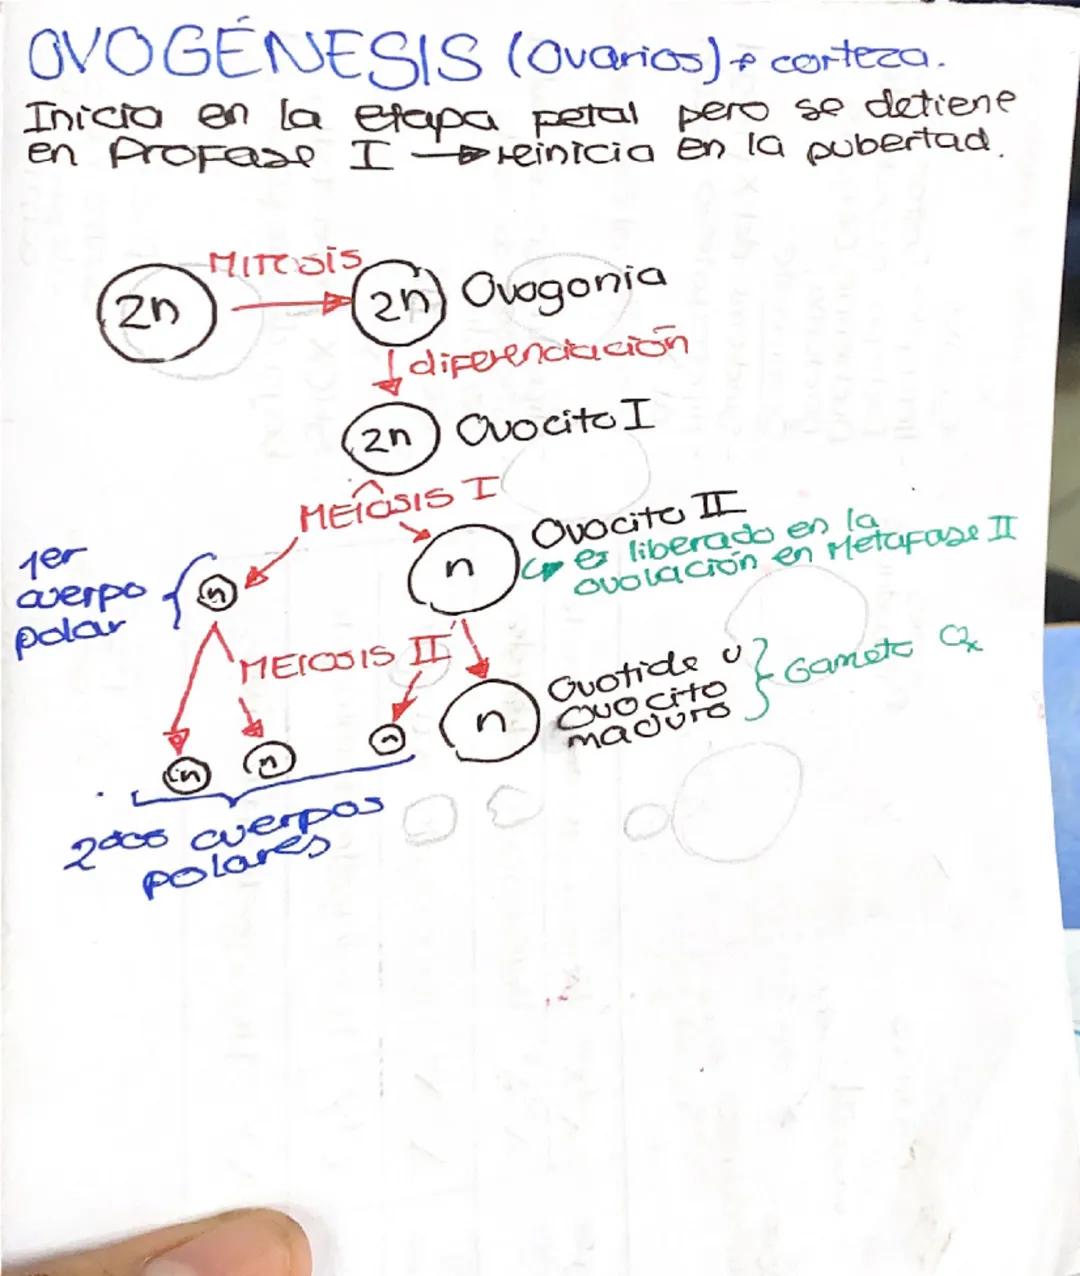 OVOGÉNESIS (Ovarios) → corteza.
Inicia en la etapa fetal pero se detiene
en Profase I → reinicia en la pubertad.
MITOSIS
2n
2n
Ovogonia
diferenciación
2n
Ovocito I
MEIOSIS I
1er
cuerpo
polar
n
n
Ovocito II
↳ es liberado en la
ovolación en Metafase II
MEIOSIS II
n
n
n
n
Ovotide u
ovocito
maduro
Gameto
2dos cuerpos
polares